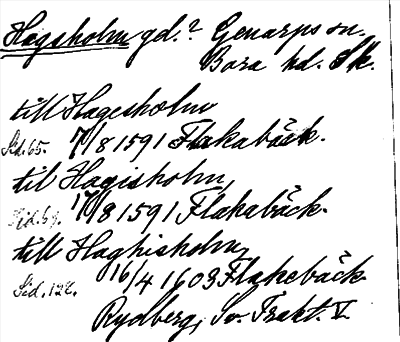 Hagsholm gd.? Genarps sn.
Bara hd. Sk.
till Hagesholm
Sid. 65. 7/8 1591 Flakabäck.
til Hagisholm,
17/8 1591 Flakabäck.
till Haghisholm,
Sid. 128. 16/4 1603 Flakebäck
Rydberg, Sv. Trakt. V.